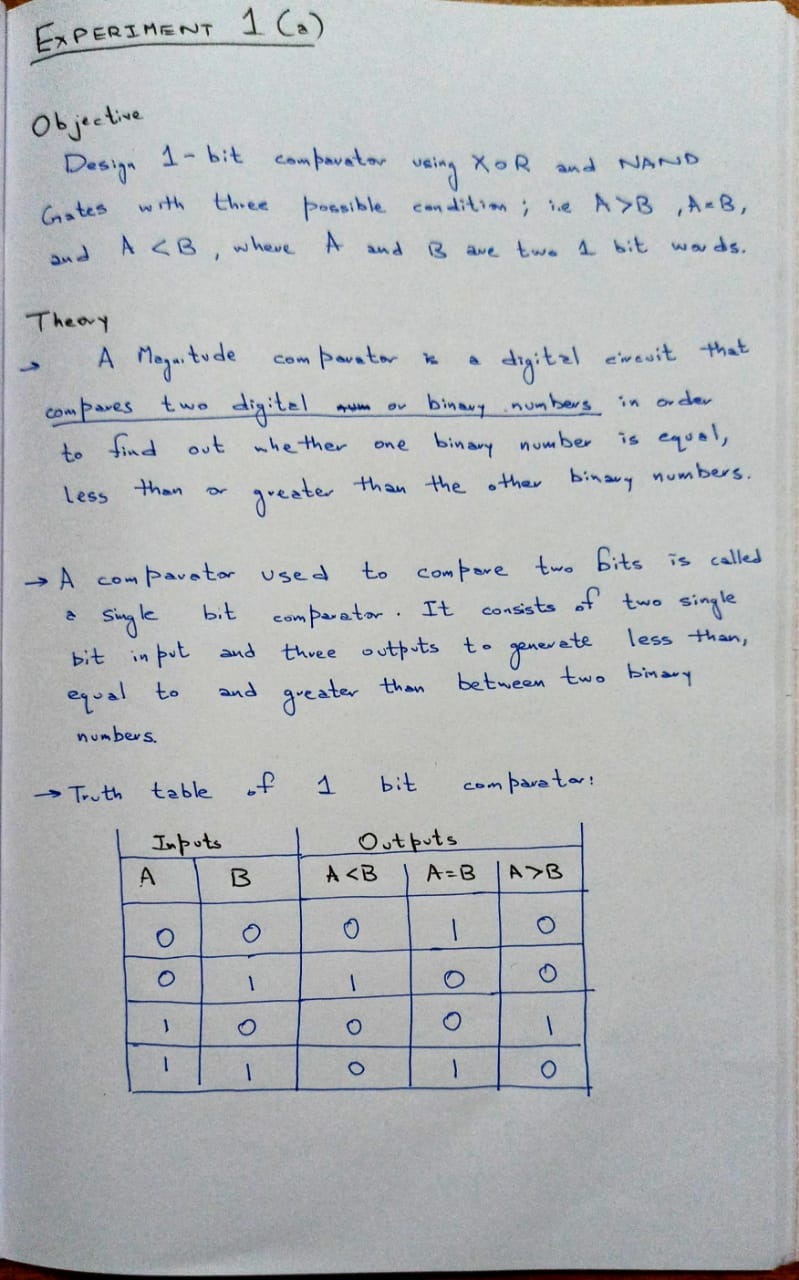 EXPERIMENT 1 (a)
Objective
Design 1-bit comparator using XOR and NAND
Gates with three possible condition; i.e A>B, A=B,
and A<B, where A and B are two 1 bit words.
Theory
→ A Magnitude comparator is a digital circuit that
compares two digital or binary numbers in order
to find out whether one binary number is equal,
less than or greater than the other binary numbers.
→ A comparator used to compare two bits is called
a single bit comparator. It consists of two single
bit input and three outputs to generate less than,
equal to and greater than between two binary
numbers.
→ Truth table of 1 bit comparator:
Inputs Outputs
A B A<B A=B A>B
0 0 0 1 0
0 1 1 0 0
1 0 0 0 1
1 1 0 1 0